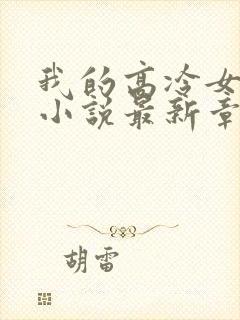 我的高冷女
小说最新章
胡雷